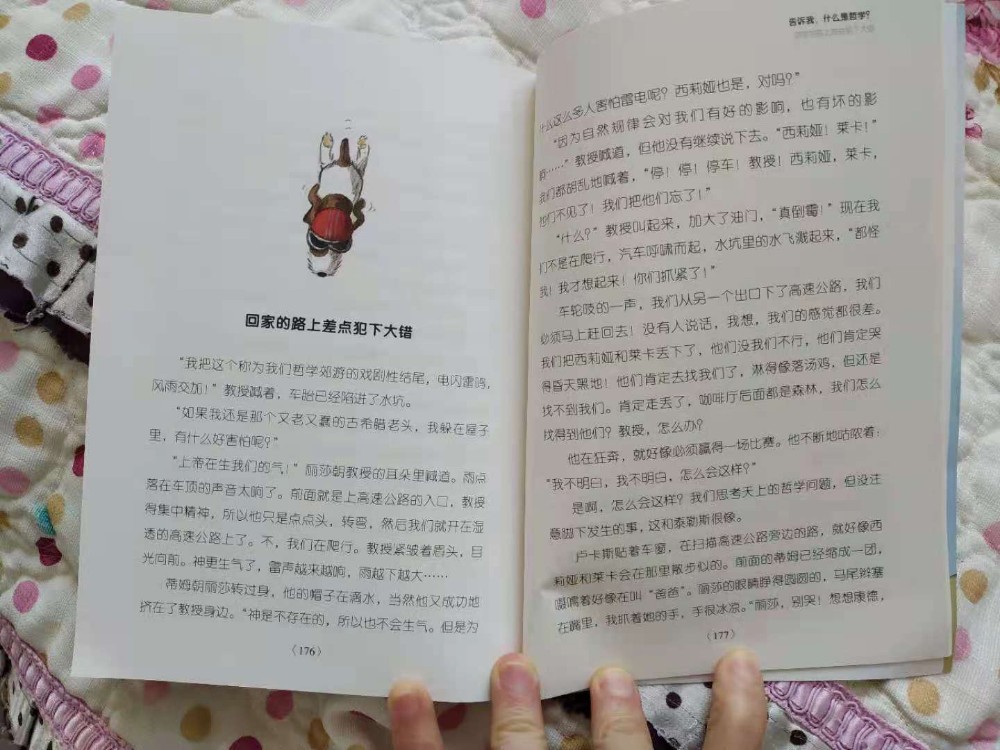 回家的路上差点犯下大错
“我把这个称为我们哲学郊游的戏剧性结尾，电闪雷鸣，
风雨交加！”教授喊着，车胎已经陷进了水坑。
“如果我还是那个又老又蠢的古希腊老头，我躲在屋子
里，有什么好害怕呢？”
“上帝在生我们的气！”丽莎朝教授的耳朵里喊道。雨点
落在车顶的声音太响了。前面就是上高速公路的入口，教授
得集中精神，所以他只是点点头，转弯，然后我们就开在湿
透的高速公路上了。不，我们在爬行。教授紧皱着眉头，目
光向前。神更生气了，雷声越来越响，雨越下越大……
蒂姆朝丽莎转过身，他的帽子在滴水，当然他又成功地
挤在了教授身边。“神是不存在的，所以也不会生气。但是为
（176）
告诉我，什么是哲学？
什么这么多人害怕雷电呢？西莉娅也是，对吗？”
“因为自然规律会对我们有好的影响，也有坏的影
……”教授喊道，但他没有继续说下去。“西莉娅！莱卡！”
我们都胡乱地喊着，“停！停！停车！教授！西莉娅，莱卡，
他们不见了！我们把他们忘了！”
“什么？”教授叫起来，加大了油门，“真倒霉！”现在我
们不是在爬行，汽车呼啸而起，水坑里的水飞溅起来，“都怪
我！我才想起来！你们抓紧了！”
车轮吱的一声，我们从另一个出口下了高速公路，我们
必须马上赶回去！没有人说话，我想，我们的感觉都很差。
我们把西莉娅和莱卡丢下了，他们没我们不行，他们肯定哭
得昏天黑地！他们肯定去找我们了，淋得像落汤鸡，但还是
找不到我们。肯定走丢了，咖啡厅后面都是森林，我们怎么
找得到他们？教授，怎么办？
他在狂奔，就好像必须赢得一场比赛。他不断地咕哝着：
“我不明白，我不明白，怎么会这样？”
是啊，怎么会这样？我们思考天上的哲学问题，但没注
意脚下发生的事，这和泰勒斯很像。
卢卡斯贴着车窗，在扫描高速公路旁边的路，就好像西
莉娅和莱卡会在那里散步似的。前面的蒂姆已经缩成一团，
嘴唇看好像在叫“爸爸”。丽莎的眼睛睁得圆圆的，马尾辫塞
在嘴里，我抓着她的手，手很冰凉。“丽莎，别哭！想想康德，
（177）